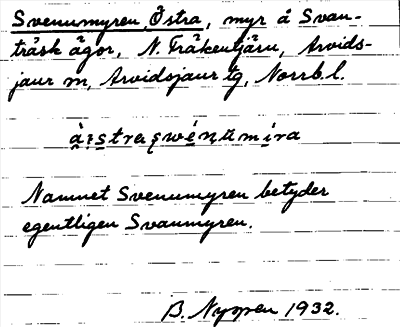 Svenumyren, Östra, myr å Svan-
träsk ägor, N. Fräkentjärn, Arvids-
jaur sn, Arvidsjaur tg, Norrb. l.
Namnet Svenumyren betyder
egentligen Svanmyren.
B. Nyman 1932.